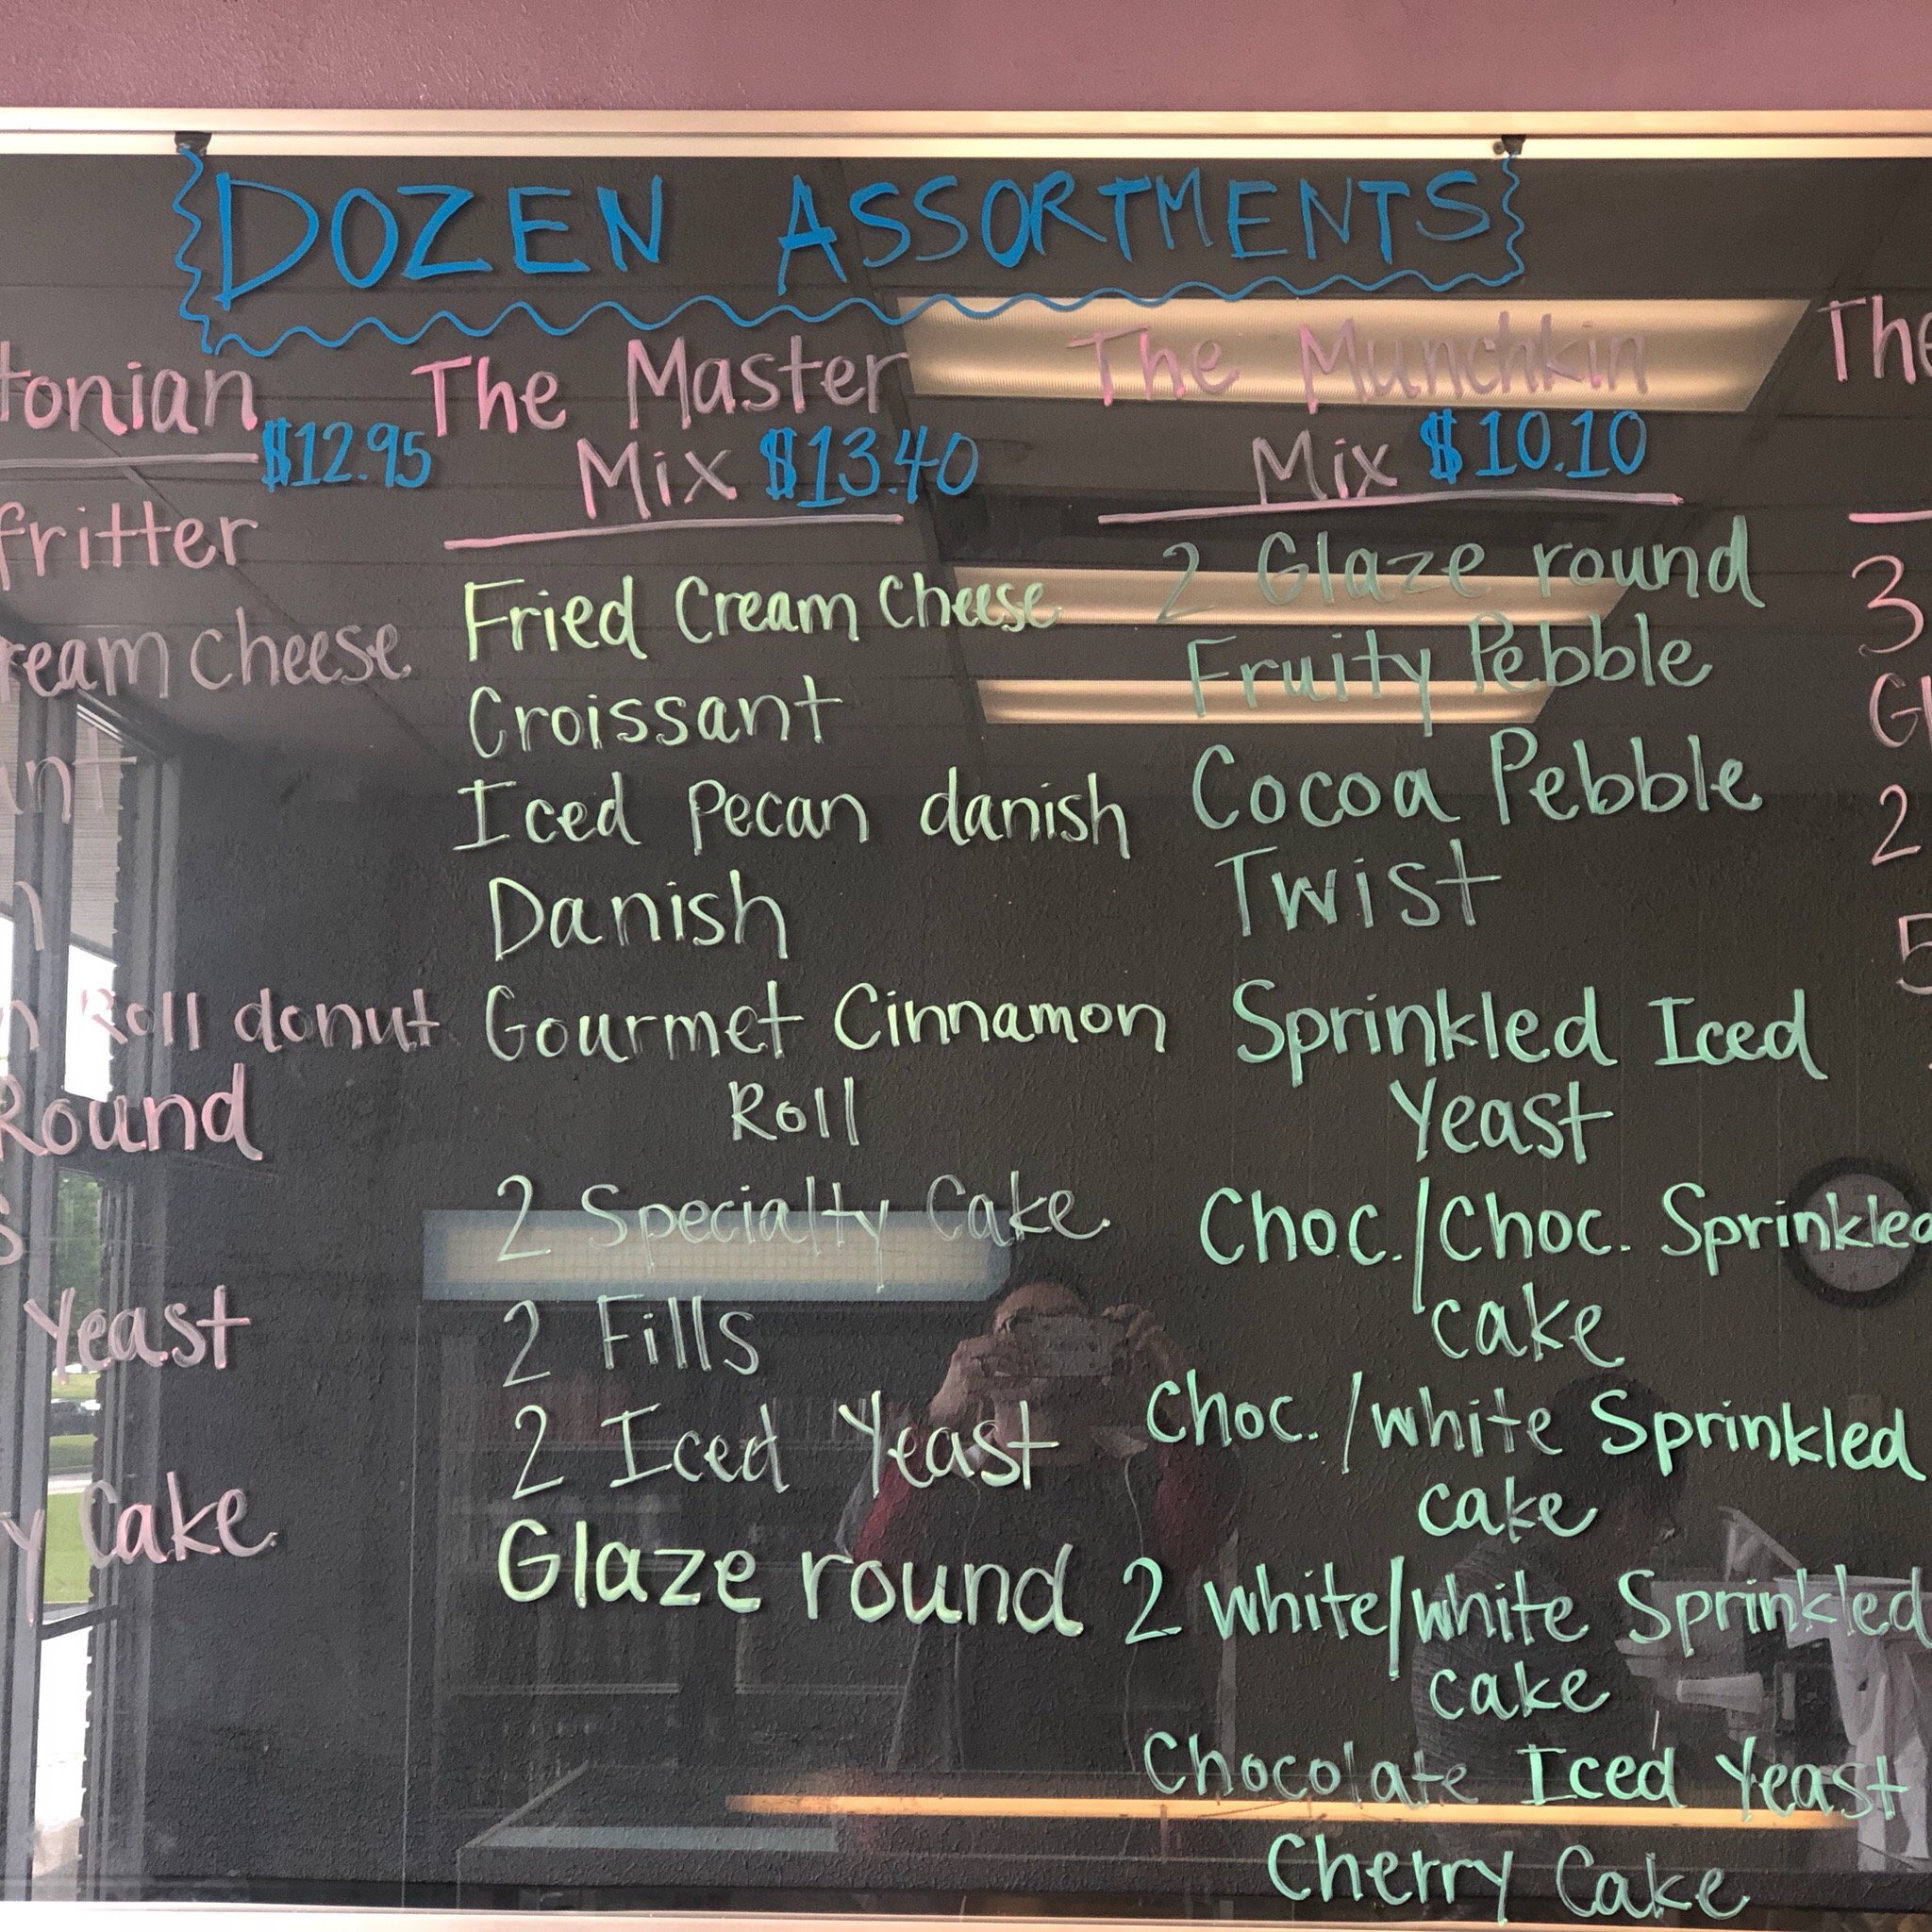 DOZEN ASSORTMENTS
$12.95
fritter
Cheese
Roll donut
Round
Yeast
Cake
The Master
Mix $13.40
Fried Cream Cheese
Croissant
Iced Pecan danish
Danish
Gourmet Cinnamon
Roll
2 Specialty Cake
2 Fills
2 Iced Yeast
Glaze round
The Munchkin
Mix $10.10
2 Glaze round
Fruity Pebble
Cocoa Pebble
Twist
Sprinkled Iced
Yeast
Choc./Choc. Sprinkled
cake
Choc./white Sprinkled
cake
2 White/white Sprinkled
cake
Chocolate Iced Yeast
Cherry Cake
The
3
2
5